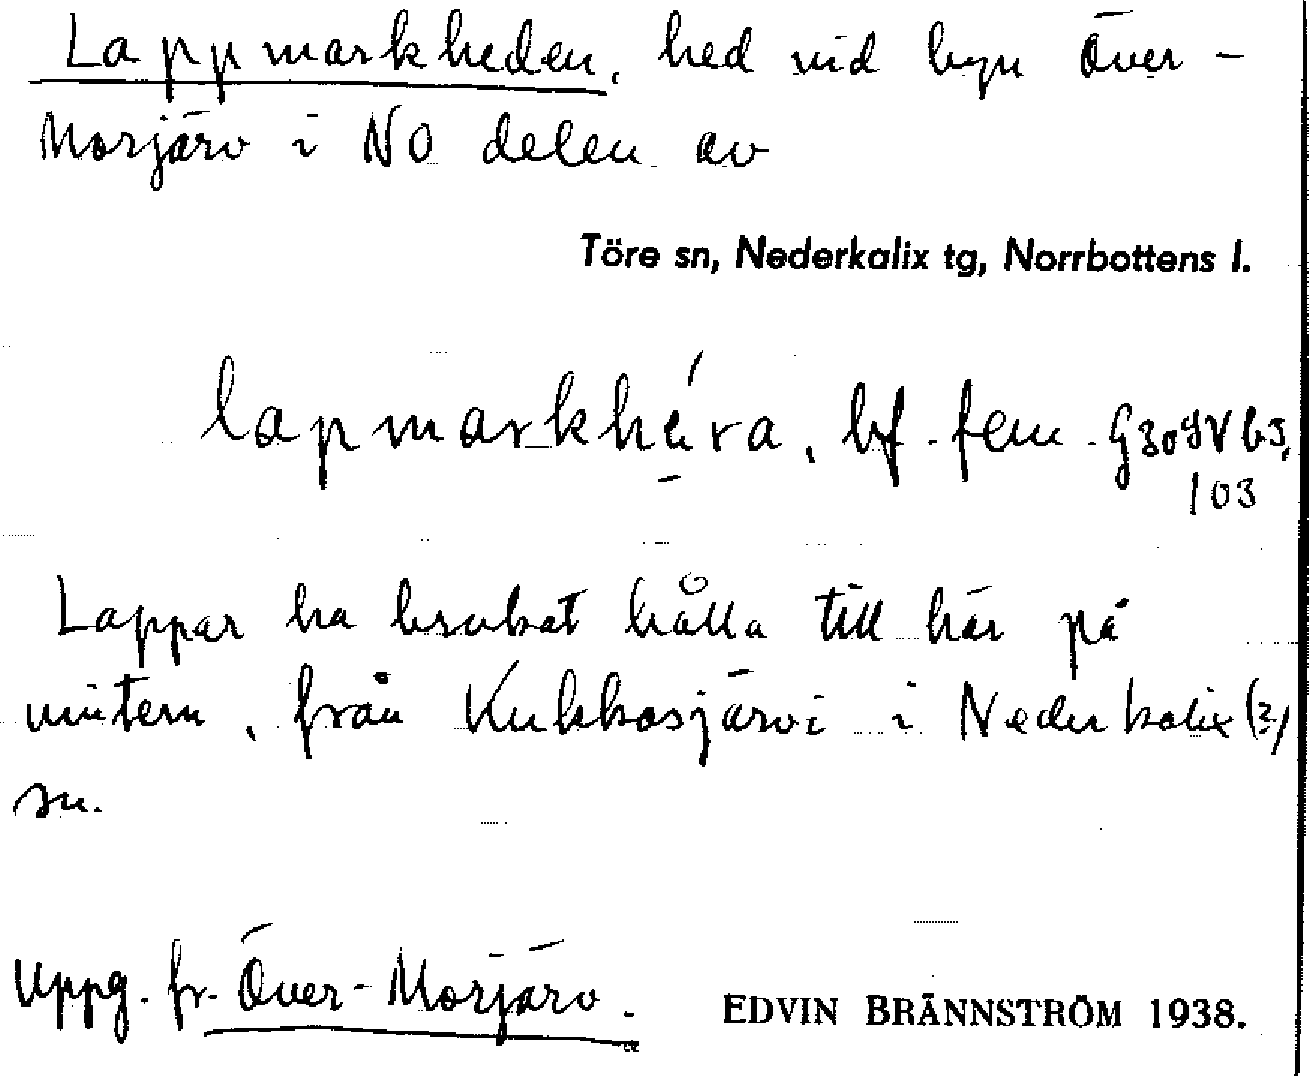 Lappmarkheden, hed vid byn Över-
Morjärv i NO delen av
Töre sn, Nederkalix tg, Norrbottens l.
lapmarkhéra, bf. fem.
103
Lappar ha brukat hålla till här på
vintern, från Kukkosjärvi i Nederkalix (?)
sn.
Uppg. fr. Över-Morjärv.
EDVIN BRÄNNSTRÖM 1938.